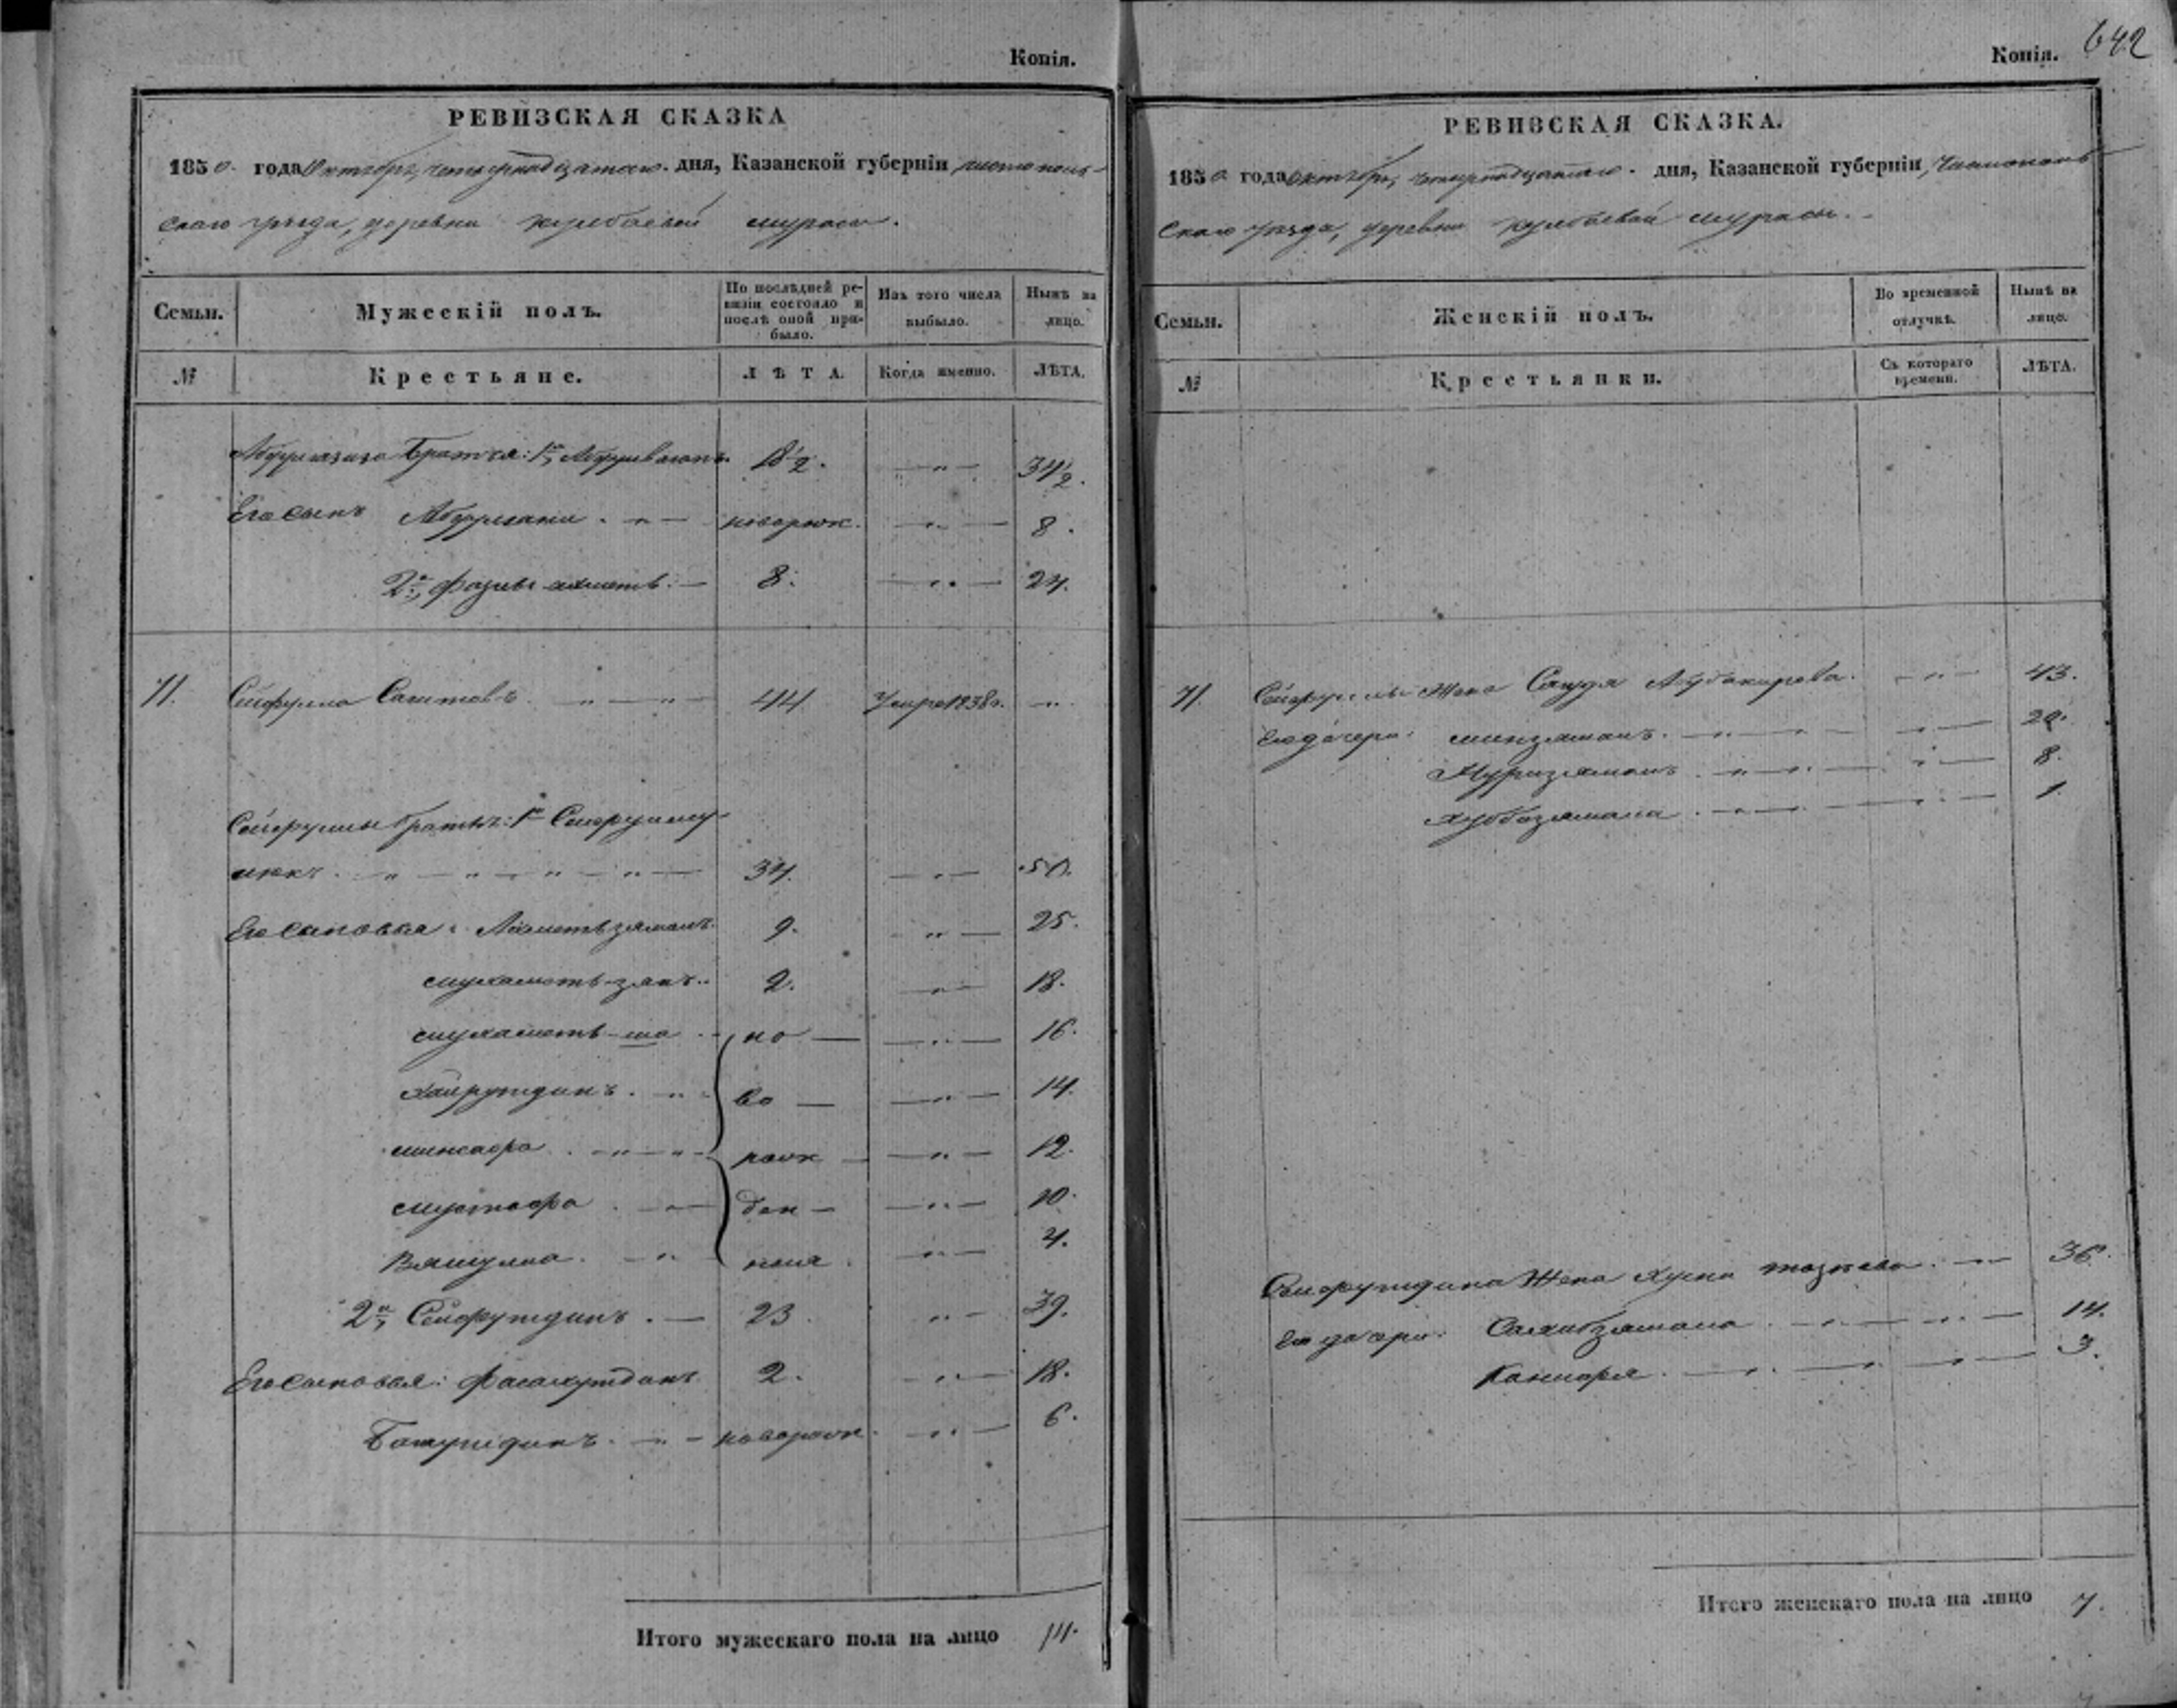 Копія.
РЕВИЗСКАЯ СКАЗКА
1850. года Октября четырнадцатаго. дня, Казанской губерніи Чистополь-
скаго уѣзда, деревни Кулбаевой Мурасы.
Семьи.
Мужескій полъ.
По послѣдней ре-
визіи состояло и
послѣ оной при-
было.
Изъ того числа
выбыло.
Нынѣ на
лицо.
№
Крестьяне.
ЛѢТА.
Когда именно.
ЛѢТА.
Братья: 1й, 18½. — „ — 34½.
Его сынъ Абдулгани. — „ — новорож. — „ — 8.
2й, Фазлы-ахметъ. — 8. — „ — 24.
71. Сейфулла Саитовъ. — „ — „ — 44 Умре 1838 г. „
Сейфуллы братья: 1й Сейфулму-
люкъ. — „ — „ — „ — „ — 34. — „ — 50.
Его сыновья: Ахметьзяманъ. 9. „ — 25.
Мухаметь-зянъ. 2. — „ — 18.
Мухаметь-ша. но — — „ — 16.
Хайрутдинъ. — „ во — — „ — 14.
Минзафа. — „ — „ — рож — — „ — 12.
Мустафа. — „ — ден — — „ — 10.
Вялиулла. — „ — ныя. — „ — 4.
2й, Сейфутдинъ. — 23. „ — 39.
Его сыновья: Фасахутдинъ 2. — „ — 18.
— „ — новорож. — „ — 6.
Итого мужескаго пола на лицо 14.
Копія. 642
РЕВИЗСКАЯ СКАЗКА.
1850 года Октября, четырнадцатаго. дня, Казанской губерніи, Чистополь-
скаго уѣзда, деревни Кулбаевой Мурасы.
Семьи.
Женскій полъ.
Во временной
отлучкѣ.
Нынѣ на
лицо.
№
Крестьянки.
Съ котораго
времени.
ЛѢТА.
71. Сейфуллы жена Сагидя Абубакирова. — „ — 43.
Его дочери: Минзямалъ. — „ — „ — 20.
Нуризямалъ. — „ — „ — 8.
Хуббзямала. — „ — 1.
Сейфутдина жена Хусни — „ — 36.
Его дочери: Сахибзямала. — „ — „ — 14.
— „ — „ — „ — 3.
Итого женскаго пола на лицо 7.